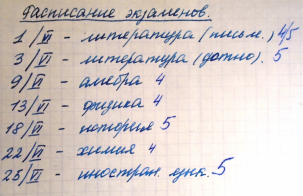 Расписание экзаменов.
1/VI – литература (письм.) 4/5
3/VI – литература (устно). 5
9/VI – алгебра 4
13/VI – физика 4
18/VI – история 5
22/VI – химия 4
25/VI – иностран. язык. 5